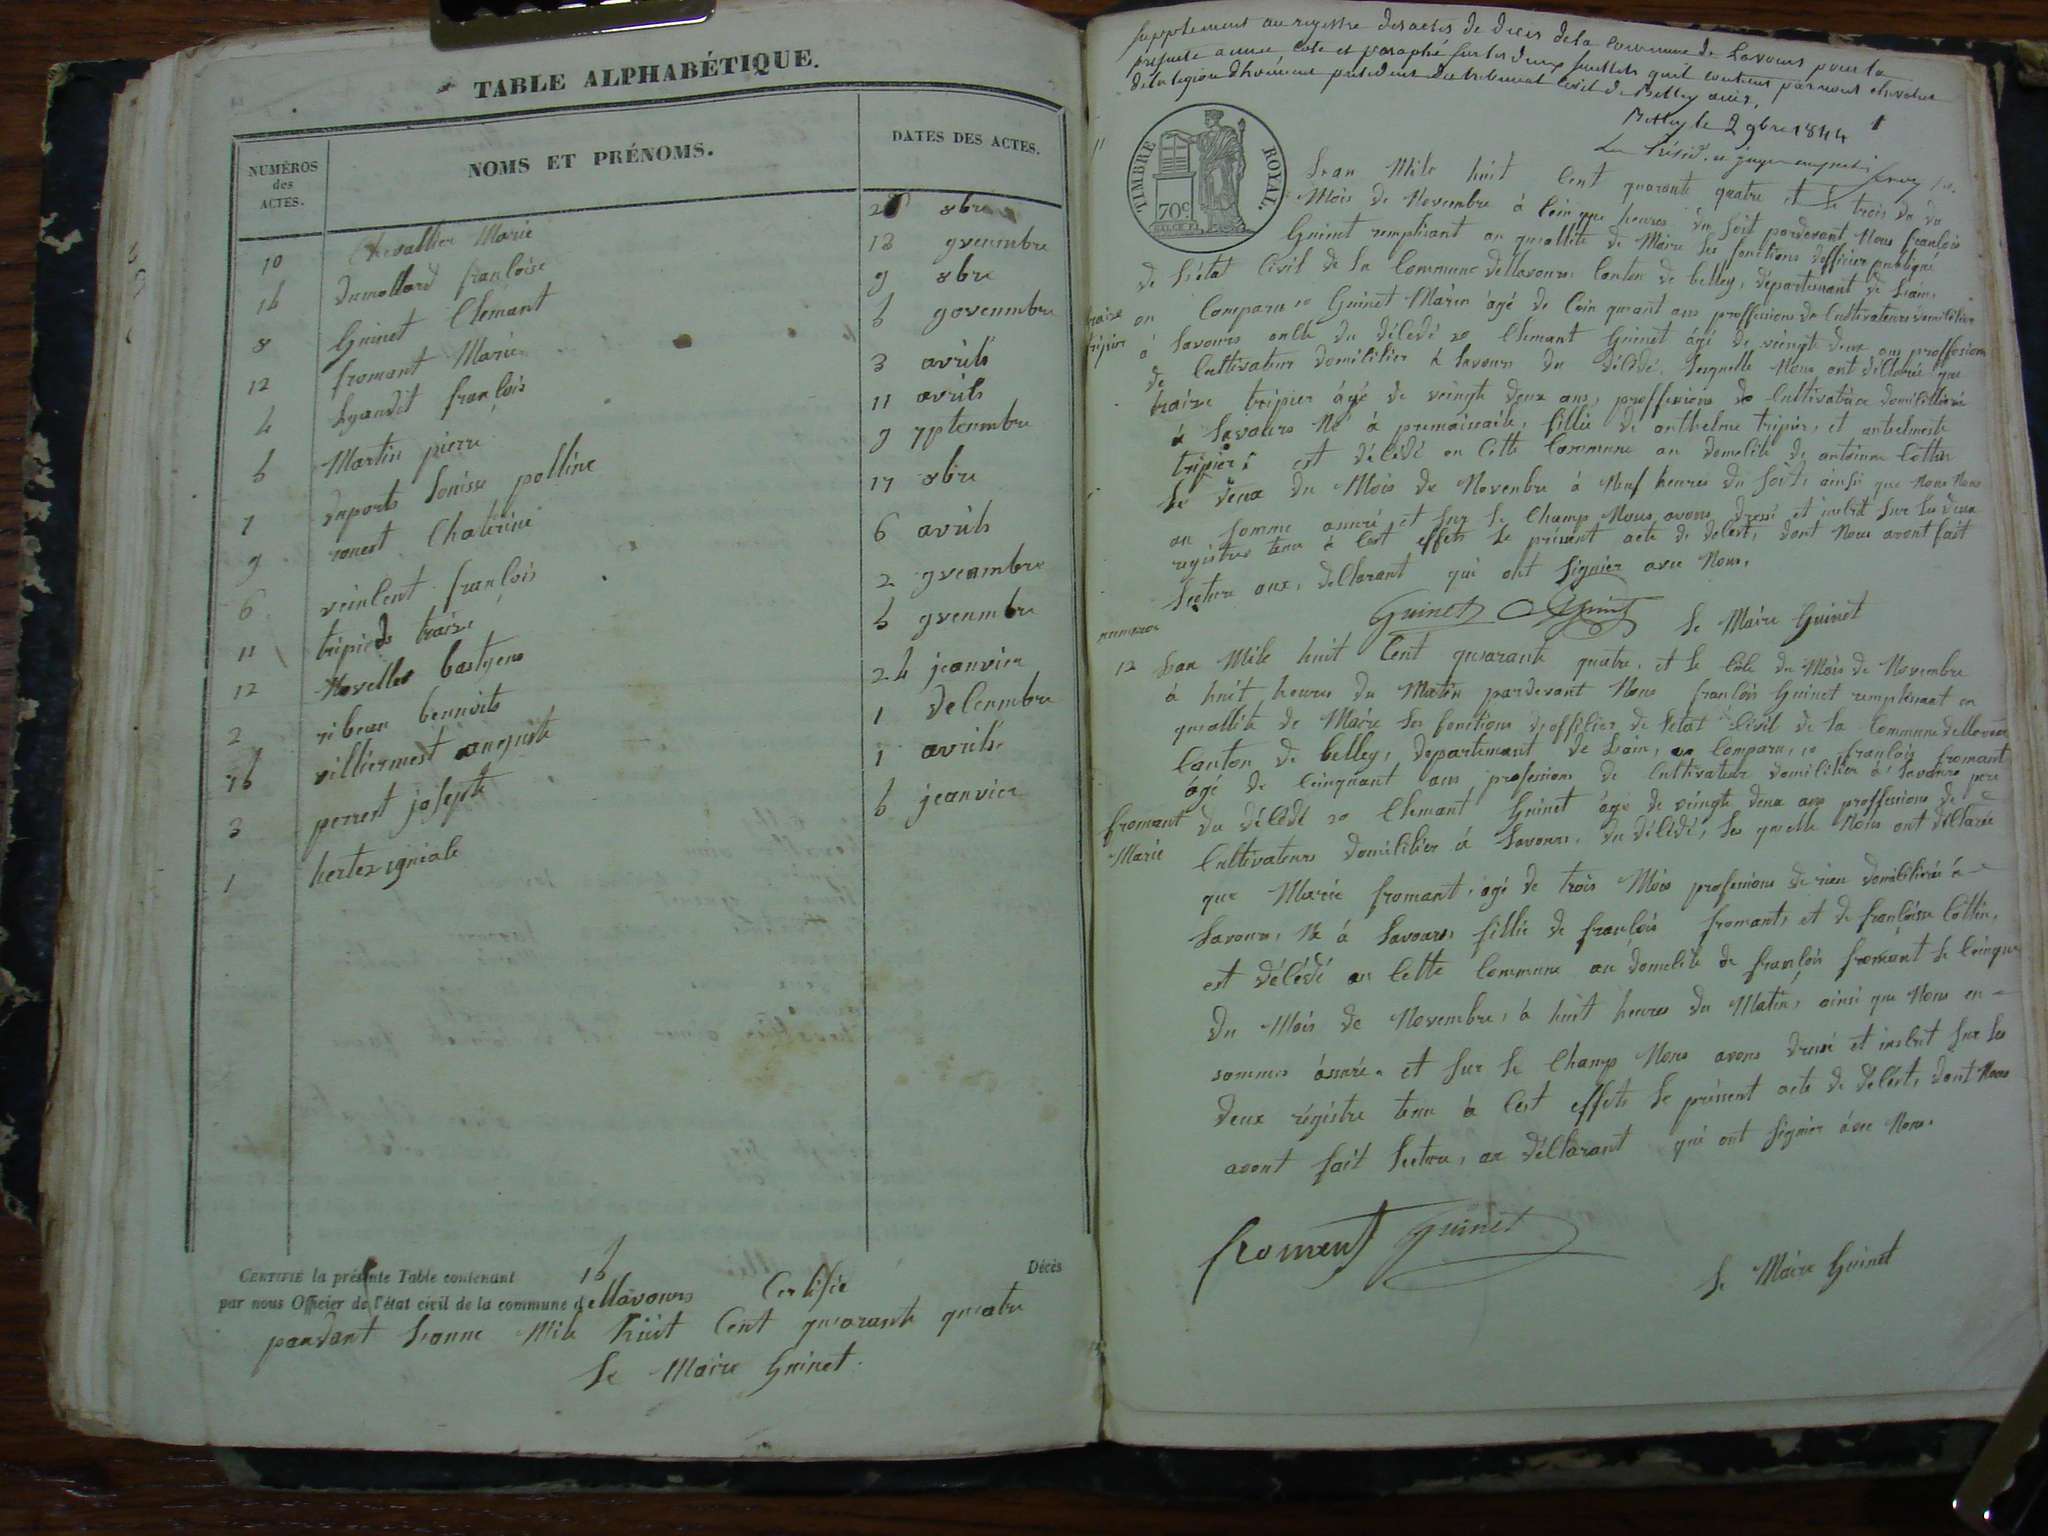 TABLE ALPHABÉTIQUE.
NUMÉROS des ACTES.
NOMS ET PRÉNOMS.
DATES DES ACTES.
10 Chevallier Marie 8bre
16 dumollard françoise 18 9venmbre
8 Guinet Clémant 9 8bre
12 fromant Marie 5 9ovenmbre
4 françois 3 avrils
5 Martin pierre 11 avrils
7 duports Louisse polline 9 7ptenmbre
9 Chaterine 17 8bre
6 veinlent françois 6 avrils
11 tripiede traize 2 9venmbre
12 Novelles bastyens 5 9venmbre
2 ribeau bennoits 24 jeanvier
15 villiermest auguiste 1 decenmbre
3 perrest josepte 1 avrils
1 hertez 5 jeanvier
CERTIFIÉ la présente Table contenant 15 Décès
par nous Officier de l'état civil de la commune dellavours Certifié
pandant Leanne Mile huit Cent quarante quatre
Le Maire Guinet.
Supplement au registre des actes de deces de la commune de Lavours pour la
presente annee cote et paraphé sur les deux feuillets qu'il contient par nous chevalier
de la legion d'honneur president du tribunal civil de Belley
Belley le 2 9bre 1844
TIMBRE ROYAL.
70c
11 Lean Mile huit Cent quarante quatre et le trois du
Mois de Novembre à Cinque heures du soit pardevant Nous françois
Guinet remplisant an quallité de Maire les fonctions d'officier publique
de Létat Civil de La Commune dellavours Canton de belley, département de Lain,
traize tripier
on Comparu 10 Guinet Marin âgé de Cinquant ans proffesions de Cultivateurs domicilier
à Lavours du délédé 20 Clemant Guinet âgé de veingte deux ans proffesions
de Cultivateur domicilier à Lavours du délédé. Lesquelle Nous ont déllarée que
traize tripier âgé de veingte deux ans, proffesions de Cultivatrice domicillieré
à Lavours Né à premaiseile, fillie de anthelme tripier, et antelmeste
tripier; est délédé en Cette Commune au domelile de antoinne Cottin
Le deux du Mois de Novenbre à Neuf heures du soit, ainsi que Nous Nous
an somme assuré et sur Le Champ Nous avons dressé et inscrit sur Les deux
registres tenu à Cest effets Le présent acte de delest, dont Nous avont fait
Lecture aux, dellarant qui ont signier avec Nous.
Guinet Guinet Le Maire Guinet
nummero
12 Lean Mile huit Cent quarante quatre, et le Cilc du Mois de Novembre
à huit heures du Matin pardevant Nous françois Guinet remplissant en
quallité de Maire Les fonctions d'offilier de Létat Civil de la Commune dellavours
Canton de belley, departemant de Lain, on Comparu, 10 françois fromant
âgé de Cinquant ans professions de Cultivateur domicilier à Lavours pere
fromant Marie
du délédé 20 Clemant Guinet âgé de veingte deux ans proffesions de
Cultivateurs domicilier à Lavours, du délédé, Les quelle Nous ont déllarée
que Marie fromant, agé de trois Mois professions de rien domiciliéré à
Lavours, Né à Lavours, fillie de françois fromant, et de françoise Cottin,
est délédé en Cette Commune au domelile de françois fromant Le Cinque
du Mois de Novembre, à huit heures du Matin, ainsi que Nous en
sommes assuré. et sur Le Champ Nous avons dressé et inscrit sur Les
deux régistre tenu à Cest effets Le présent acte de délest, dont Nous
avont fait Lecture, au déllarant qui ont signier avec Nous.
froment Guinet
Le Maire Guinet